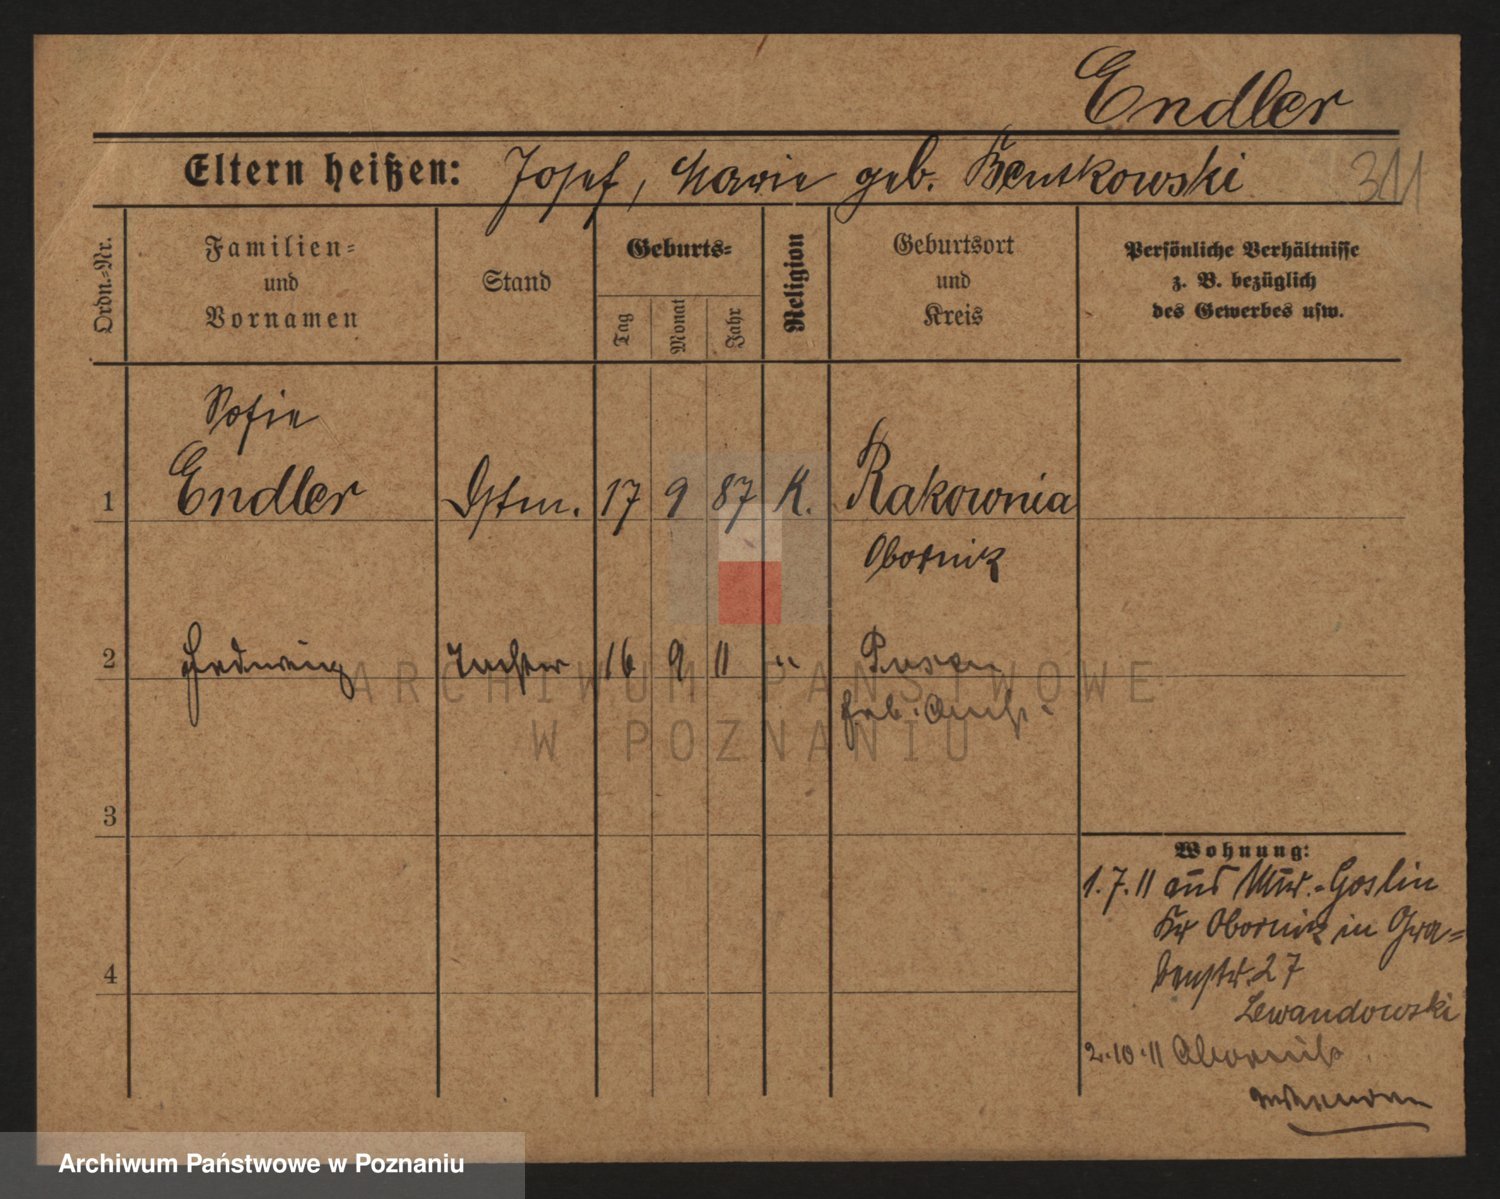 Endler
Eltern heißen: Josef, Marie geb. Bentkowski
311
Ordn.-Nr.
Familien-
und
Vornamen
Stand
Geburts-
Tag
Monat
Jahr
Religion
Geburtsort
und
Kreis
Persönliche Verhältnisse
z. B. bezüglich
des Gewerbes usw.
Sofie
1 Endler Dstm. 17 9 87 K. Rakownia
Obornik
2 Hedwig Tochter 16 9 11 " Posen
3
4
Wohnung:
1.7.11 aus Mur.-Goslin
Kr Obornik in Gra-
benstr. 27
Lewandowski
2.10.11
ARCHIWUM PAŃSTWOWE
W POZNANIU
Archiwum Państwowe w Poznaniu